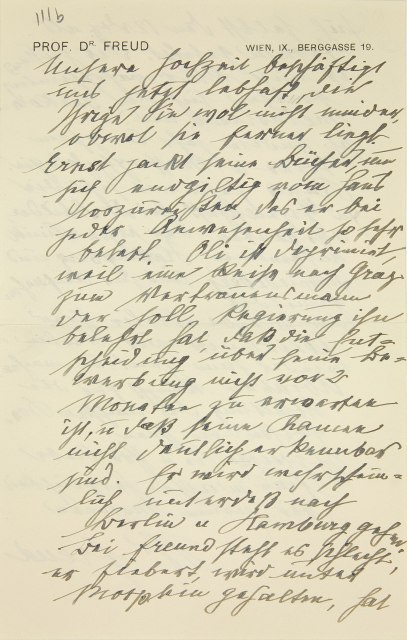 IIIb
PROF. DR. FREUD WIEN, IX., BERGGASSE 19.
Unsere Hochzeit beschäftigt
uns jetzt lebhaft, die
Ihrige Sie wol nicht minder,
obwol sie ferner liegt.
Ernst packt seine Bücher um
sich endgiltig vom Haus
loszureißen, das er bei
jeder Anwesenheit so sehr
belebt. Oli ist deprimirt,
weil eine Reise nach Graz
zum Vertrauensmann
der holl. Regierung ihn
belehrt hat, daß die Ent-
scheidung über seine Be-
werbung nicht vor 2
Monaten zu erwarten
ist, u daß seine Chancen
nicht deutlich erkennbar
sind. Er wird wahrschein-
lich unterdeß nach
Berlin u Hamburg gehen.
Bei Freund steht es schlecht,
er fiebert, wird unter
Morphin gehalten, hat